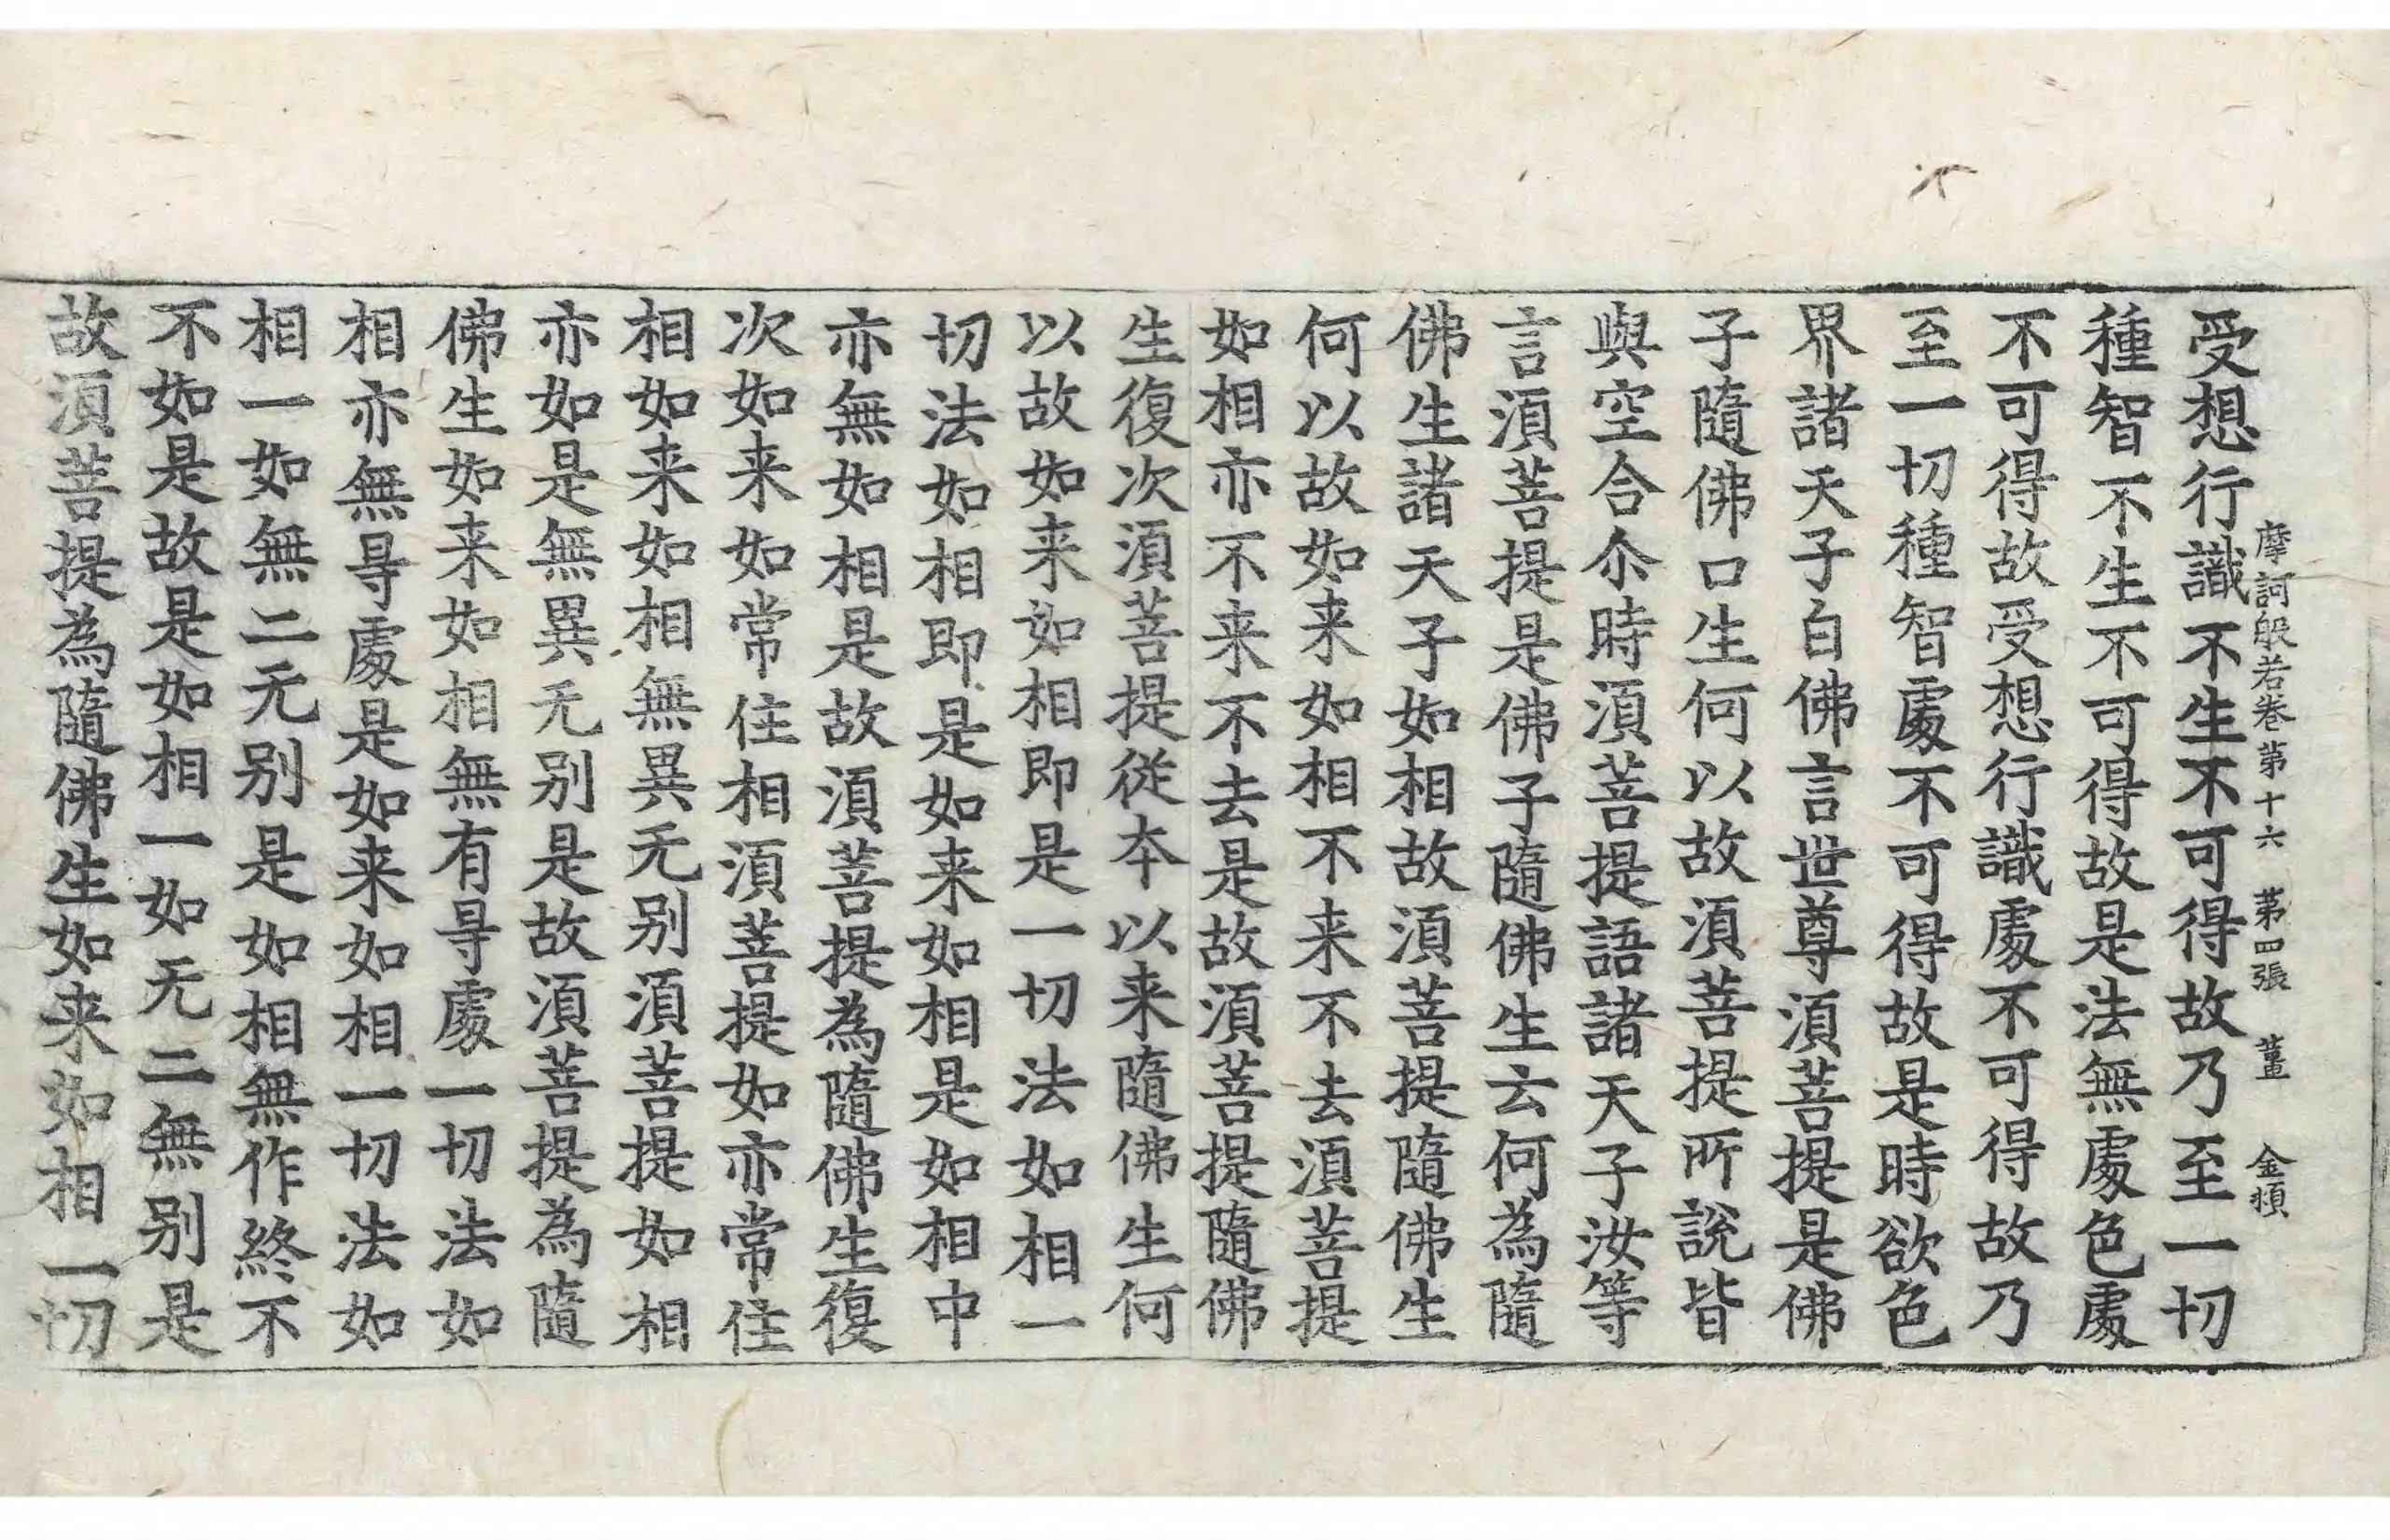 摩訶般若卷第十六 第四張 董 金順
受想行識不生不可得故乃至一切
種智不生不可得故是法無處色處
不可得故受想行識處不可得故乃
至一切種智處不可得故是時欲色
界諸天子白佛言世尊湏菩提是佛
子隨佛口生何以故湏菩提所說皆
與空合尒時湏菩提語諸天子汝等
言湏菩提是佛子隨佛生云何為隨
佛生諸天子如相故湏菩提隨佛生
何以故如来如相不来不去湏菩提
如相亦不来不去是故湏菩提隨佛
生復次湏菩提從夲以来隨佛生何
以故如来如相即是一切法如相一
切法如相即是如来如相是如相中
亦無如相是故湏菩提為隨佛生復
次如来如常住相湏菩提如亦常住
相如来如相無異无别湏菩提如相
亦如是無異无别是故湏菩提為隨
佛生如来如相無有㝵處一切法如
相亦無㝵處是如来如相一切法如
相一如無二无别是如相無作終不
不如是故是如相一如无二無别是
故湏菩提為隨佛生如来如相一切